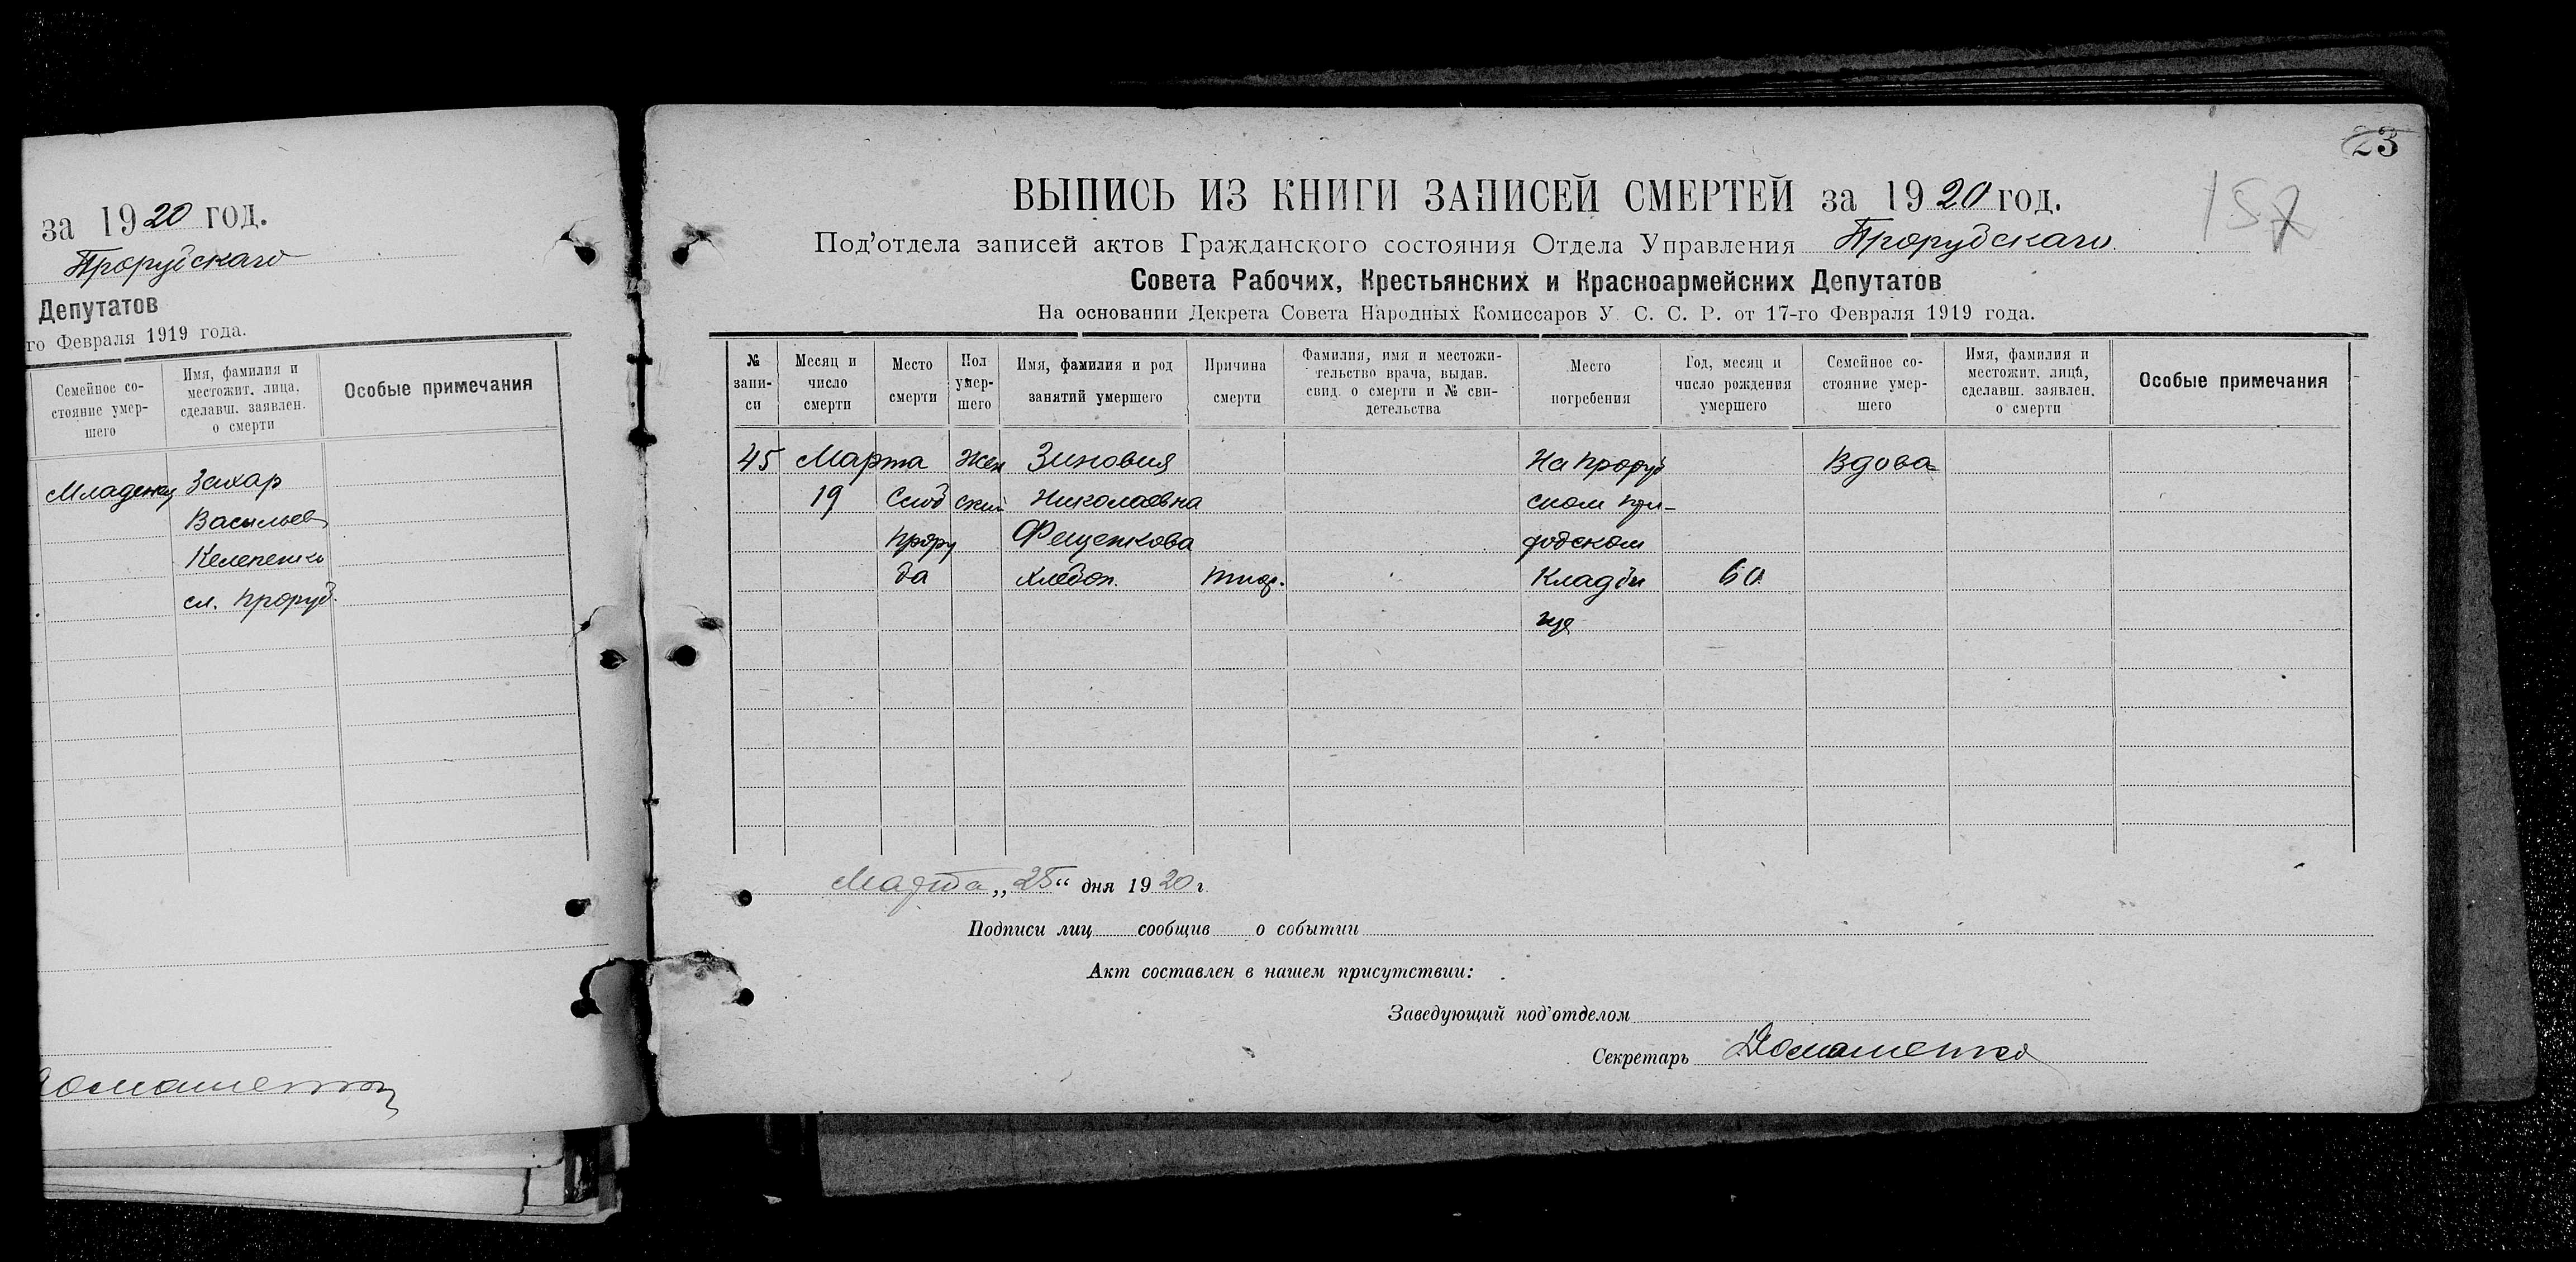 за 1920 год.
Прорубскаго
Депутатов
го Февраля 1919 года.
Семейное со-
стояние умер-
шего
Имя, фамилия и
местожит. лица,
сделавш. заявлен.
о смерти
Особые примечания
Младенец
Захар
Васильев
Келепенко
сл. Проруб.
23
157
ВЫПИСЬ ИЗ КНИГИ ЗАПИСЕЙ СМЕРТЕЙ за 1920 год.
Под'отдела записей актов Гражданского состояния Отдела Управления Прорубскаго
Совета Рабочих, Крестьянских и Красноармейских Депутатов
На основании Декрета Совета Народных Комиссаров У. С. С. Р. от 17-го Февраля 1919 года.
№
запи-
си
Месяц и
число
смерти
Место
смерти
Пол
умер-
шего
Имя, фамилия и род
занятий умершего
Причина
смерти
Фамилия, имя и местожи-
тельство врача, выдав.
свид. о смерти и № сви-
детельства
Место
погребения
Год, месяц и
число рождения
умершего
Семейное со-
стояние умер-
шего
Имя, фамилия и
местожит. лица,
сделавш. заявлен.
о смерти
Особые примечания
45
Марта
19
Слоб
Прору
ба
Жен
ский
Зиновия
Николаевна
Фещенкова
хлебоп.
тиф.
На Проруб
ском при-
ходском
Кладби
ще
60
Вдова
Марта „25“ дня 1920 г.
Подписи лиц сообщив о событии
Акт составлен в нашем присутствии:
Заведующий под'отделом
Секретарь Домашенко